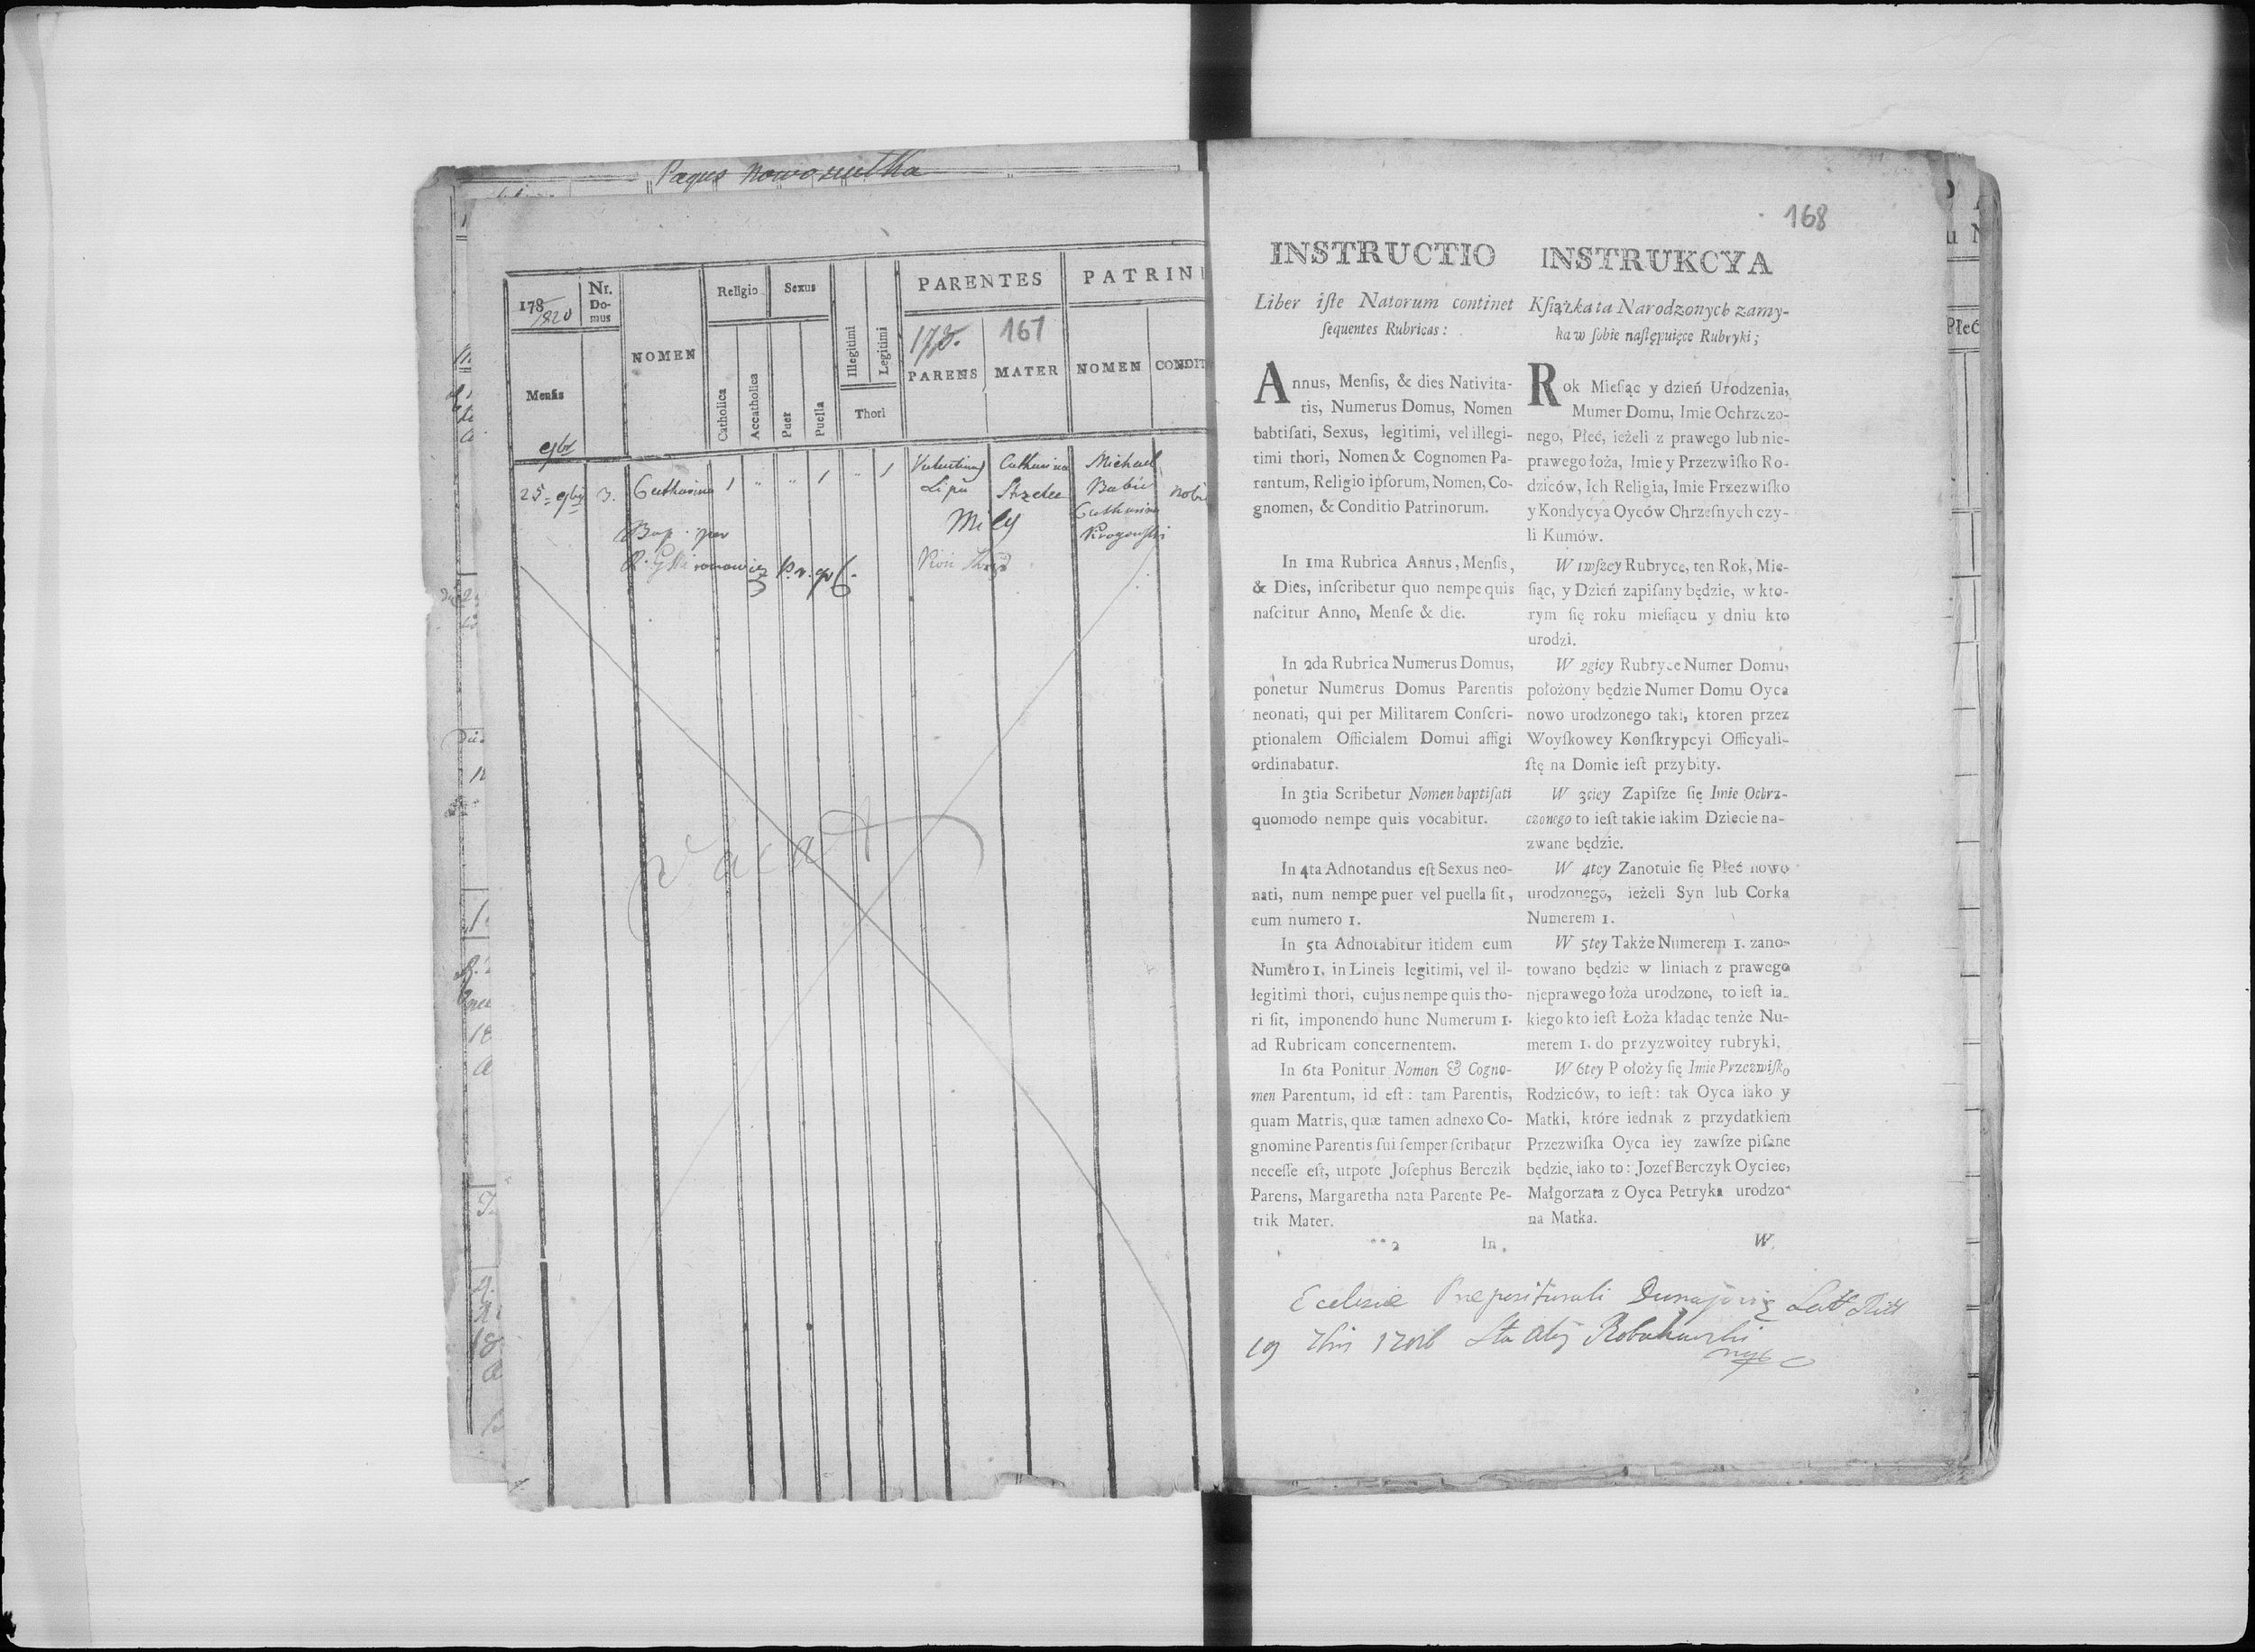 Pagus
178
1820
Nr. Domus
NOMEN
Religio
Sexus
PARENTES
PATRINI
Mensis
Catholica
Accatholica
Puer
Puella
Illegitimi
Legitimi
Thori
178.
167
PARENS
MATER
NOMEN
CONDIT
9br
25 9bris 3. Catharina 1 " " 1 " 1 Valentinus Catharina Michael
Lipa Strzelec Babie nobi
Catharina
Bap. per
Vacat
168
INSTRUCTIO
Liber iſte Natorum continet
ſequentes Rubricas:
Annus, Menſis, & dies Nativita-
tis, Numerus Domus, Nomen
babtiſati, Sexus, legitimi, vel illegi-
timi thori, Nomen & Cognomen Pa-
rentum, Religio ipſorum, Nomen, Co-
gnomen, & Conditio Patrinorum.
In 1ma Rubrica Annus, Menſis,
& Dies, inſcribetur quo nempe quis
naſcitur Anno, Menſe & die.
In 2da Rubrica Numerus Domus,
ponetur Numerus Domus Parentis
neonati, qui per Militarem Conſcri-
ptionalem Officialem Domui affigi
ordinabatur.
In 3tia Scribetur Nomen baptiſati
quomodo nempe quis vocabitur.
In 4ta Adnotandus eſt Sexus neo-
nati, num nempe puer vel puella ſit,
cum numero 1.
In 5ta Adnotabitur itidem cum
Numero 1. in Lineis legitimi, vel il-
legitimi thori, cujus nempe quis tho-
ri ſit, imponendo hunc Numerum 1.
ad Rubricam concernentem.
In 6ta Ponitur Nomen & Cogno-
men Parentum, id eſt: tam Parentis,
quam Matris, quæ tamen adnexo Co-
gnomine Parentis ſui ſemper ſcribatur
neceſſe eſt, utpote Joſephus Berczik
Parens, Margaretha nata Parente Pe-
trik Mater.
**2 In
INSTRUKCYA
Kſiążka ta Narodzonych zamy-
ka w ſobie naſtępuięce Rubryki;
Rok Mieſiąc y dzień Urodzenia,
Mumer Domu, Imie Ochrzczo-
nego, Płeć, ieżeli z prawego lub nie-
prawego łoża, Imie y Przezwiſko Ro-
dziców, Ich Religia, Imie Przezwiſko
y Kondycya Oyców Chrzeſnych czy-
li Kumów.
W 1wſzey Rubryce, ten Rok, Mie-
ſiąc, y Dzień zapiſany będzie, w kto-
rym ſię roku mieſiącu y dniu kto
urodzi.
W 2giey Rubryce Numer Domu,
położony będzie Numer Domu Oyca
nowo urodzonego taki, ktoren przez
Woyſkowey Konſkrypcyi Officyali-
ſtę na Domie ieſt przybity.
W 3ciey Zapiſze ſię Imie Ochrz-
czonego to ieſt takie iakim Dziecie na-
zwane będzie.
W 4tey Zanotuie ſię Płeć nowo
urodzonego, ieżeli Syn lub Corka
Numerem 1.
W 5tey Także Numerem 1. zano-
towano będzie w liniach z prawego
nieprawego łoża urodzone, to ieſt ia-
kiego kto ieſt Łoża kładąc tenże Nu-
merem 1. do przyzwoitey rubryki.
W 6tey Położy ſię Imie Przezwiſko
Rodziców, to ieſt: tak Oyca iako y
Matki, które iednak z przydatkiem
Przezwiſka Oyca iey zawſze piſane
będzie, iako to: Jozef Berczyk Oyciec,
Małgorzata z Oyca Petryka urodzo-
na Matka.
W
Płeć